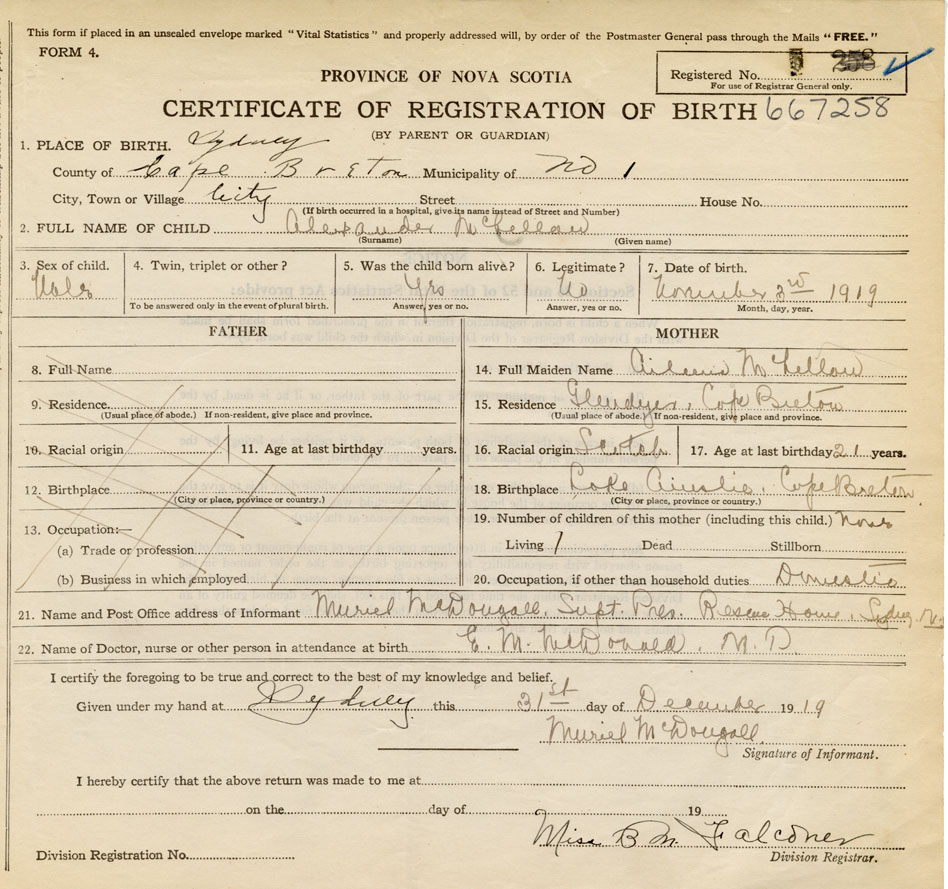 This form if placed in an unsealed envelope marked "Vital Statistics" and properly addressed will, by order of the Postmaster General pass through the Mails "FREE."
FORM 4.
PROVINCE OF NOVA SCOTIA
Registered No. 258
For use of Registrar General only.
CERTIFICATE OF REGISTRATION OF BIRTH 667258
(BY PARENT OR GUARDIAN)
1. PLACE OF BIRTH. Sydney
County of Cape Breton Municipality of No 1
City, Town or Village City Street House No.
(If birth occurred in a hospital, give its name instead of Street and Number)
2. FULL NAME OF CHILD Alexander McLellan
(Surname) (Given name)
3. Sex of child. 4. Twin, triplet or other? 5. Was the child born alive? 6. Legitimate? 7. Date of birth.
Male Yes No November 3rd 1919
To be answered only in the event of plural birth. Answer, yes or no. Answer, yes or no. Month, day, year.
FATHER MOTHER
8. Full Name
14. Full Maiden Name McLellan
9. Residence
15. Residence Glendyer, Cape Breton
(Usual place of abode.) If non-resident, give place and province. (Usual place of abode.) If non-resident, give place and province.
10. Racial origin 11. Age at last birthday years.
16. Racial origin Scotch 17. Age at last birthday 21 years.
12. Birthplace
18. Birthplace Lake Ainslie, Cape Breton
(City or place, province or country.) (City or place, province or country.)
13. Occupation:—
19. Number of children of this mother (including this child.)
(a) Trade or profession
Living 1 Dead Stillborn
(b) Business in which employed
20. Occupation, if other than household duties Domestic
21. Name and Post Office address of Informant Muriel McDougall, Supt. Pres. Rescue Home, Sydney, N.S.
22. Name of Doctor, nurse or other person in attendance at birth E. M. McDonald, M.D.
I certify the foregoing to be true and correct to the best of my knowledge and belief.
Given under my hand at Sydney this 31st day of December 1919
Muriel McDougall
Signature of Informant.
I hereby certify that the above return was made to me at
on the day of 19
Miss B. M. Falconer
Division Registration No. Division Registrar.